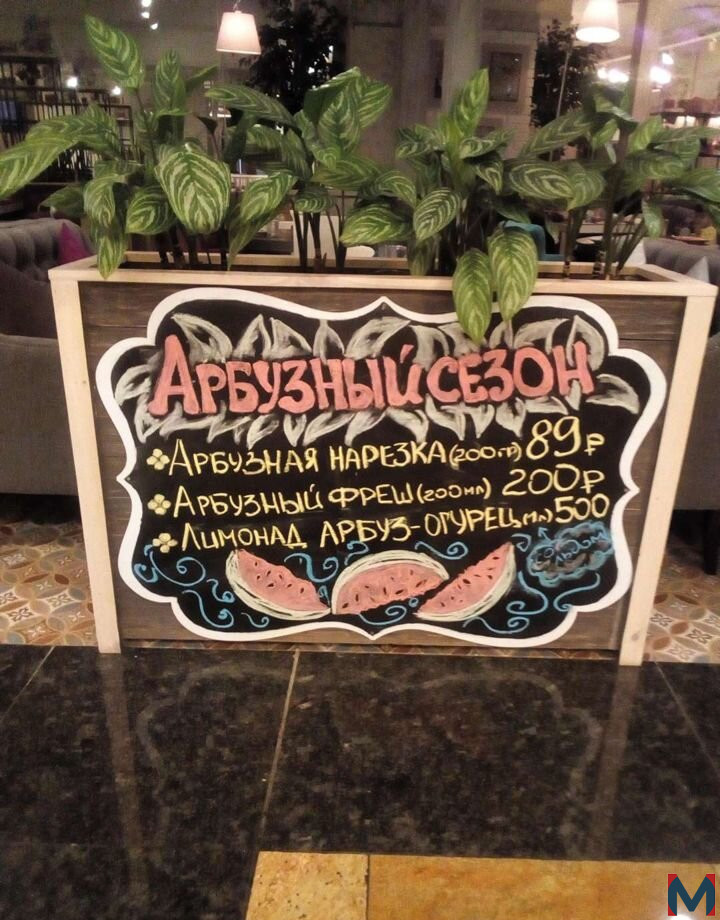 АРБУЗНЫЙ СЕЗОН
АРБУЗНАЯ НАРЕЗКА (200 гр) 89 ₽
АРБУЗНЫЙ ФРЕШ (200 мл) 200 ₽
ЛИМОНАД АРБУЗ-ОГУРЕЦ (1л) 500
М